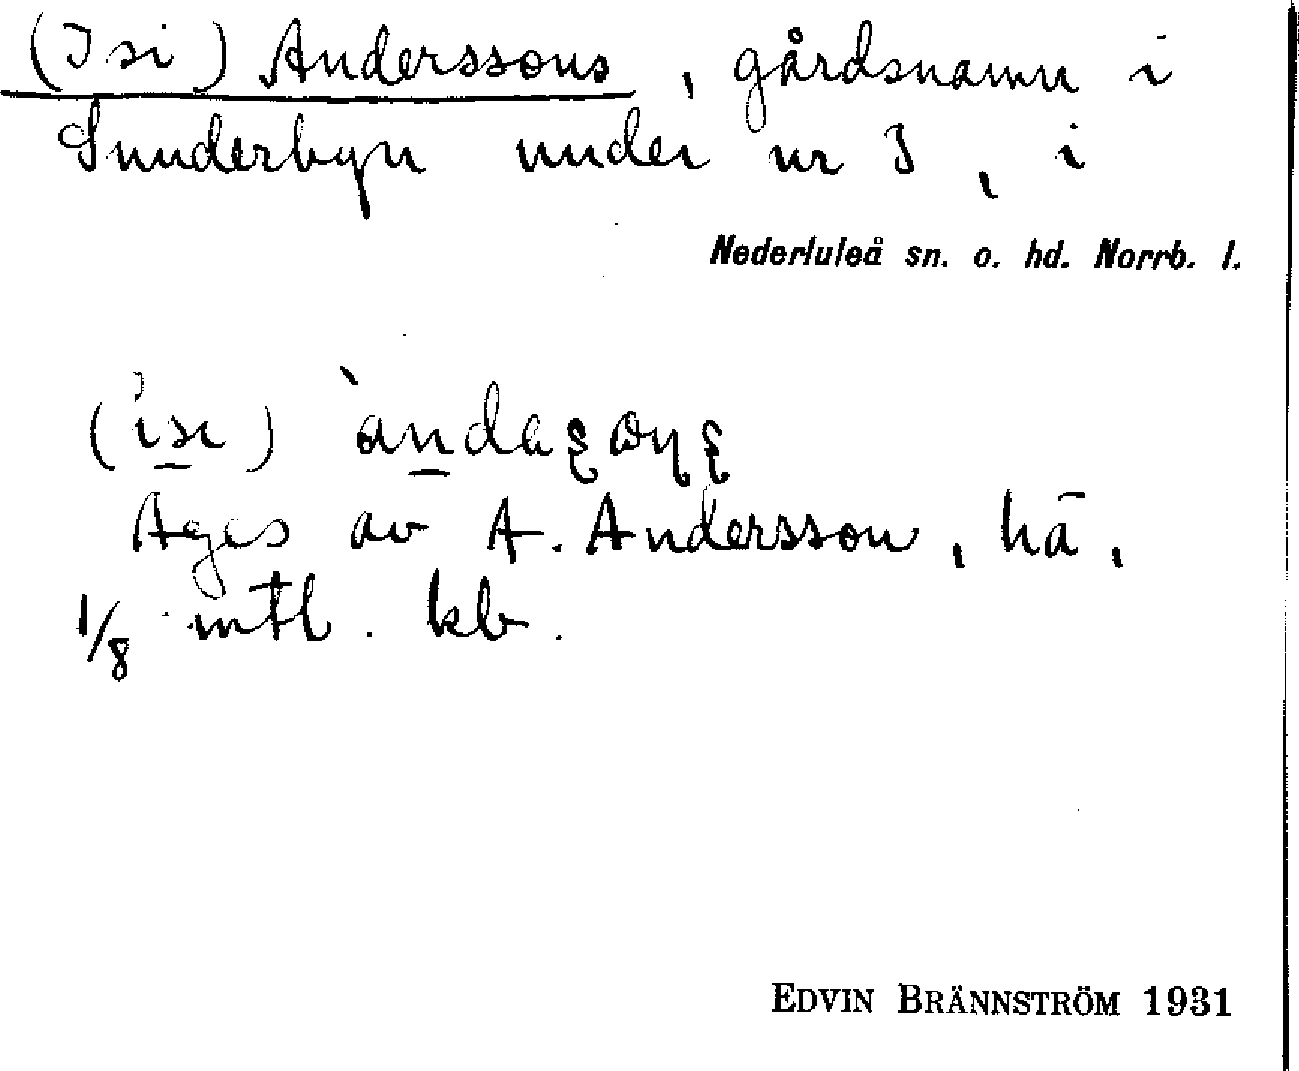 (Isi) Anderssons, gårdsnamn i
Sunderbyn under nr 3, i
Nederluleå sn. o. hd. Norrb. l.
(ise)
Ages av A. Andersson, hā,
1/8 mtl. kb.
EDVIN BRÄNNSTRÖM 1931